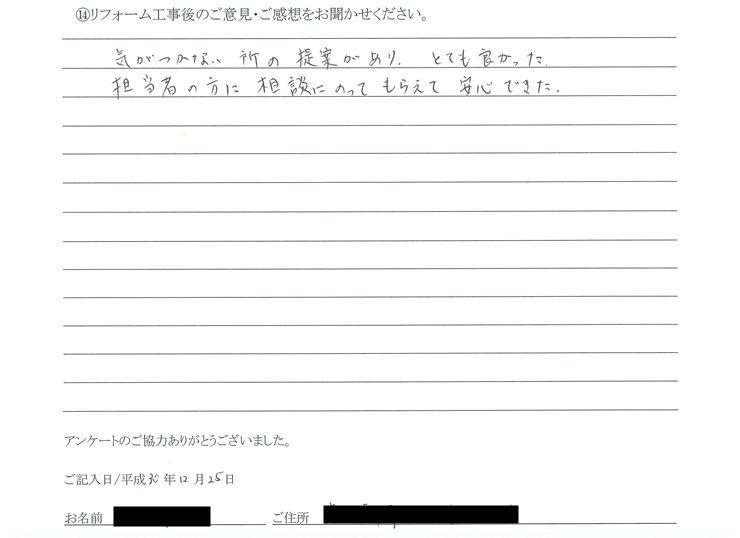 ⑭リフォーム工事後のご意見・ご感想をお聞かせください。
気がつかない所の提案があり、とても良かった。
担当者の方に相談にのってもらえて安心できた。
アンケートのご協力ありがとうございました。
ご記入日/平成30年12月25日
お名前 ご住所